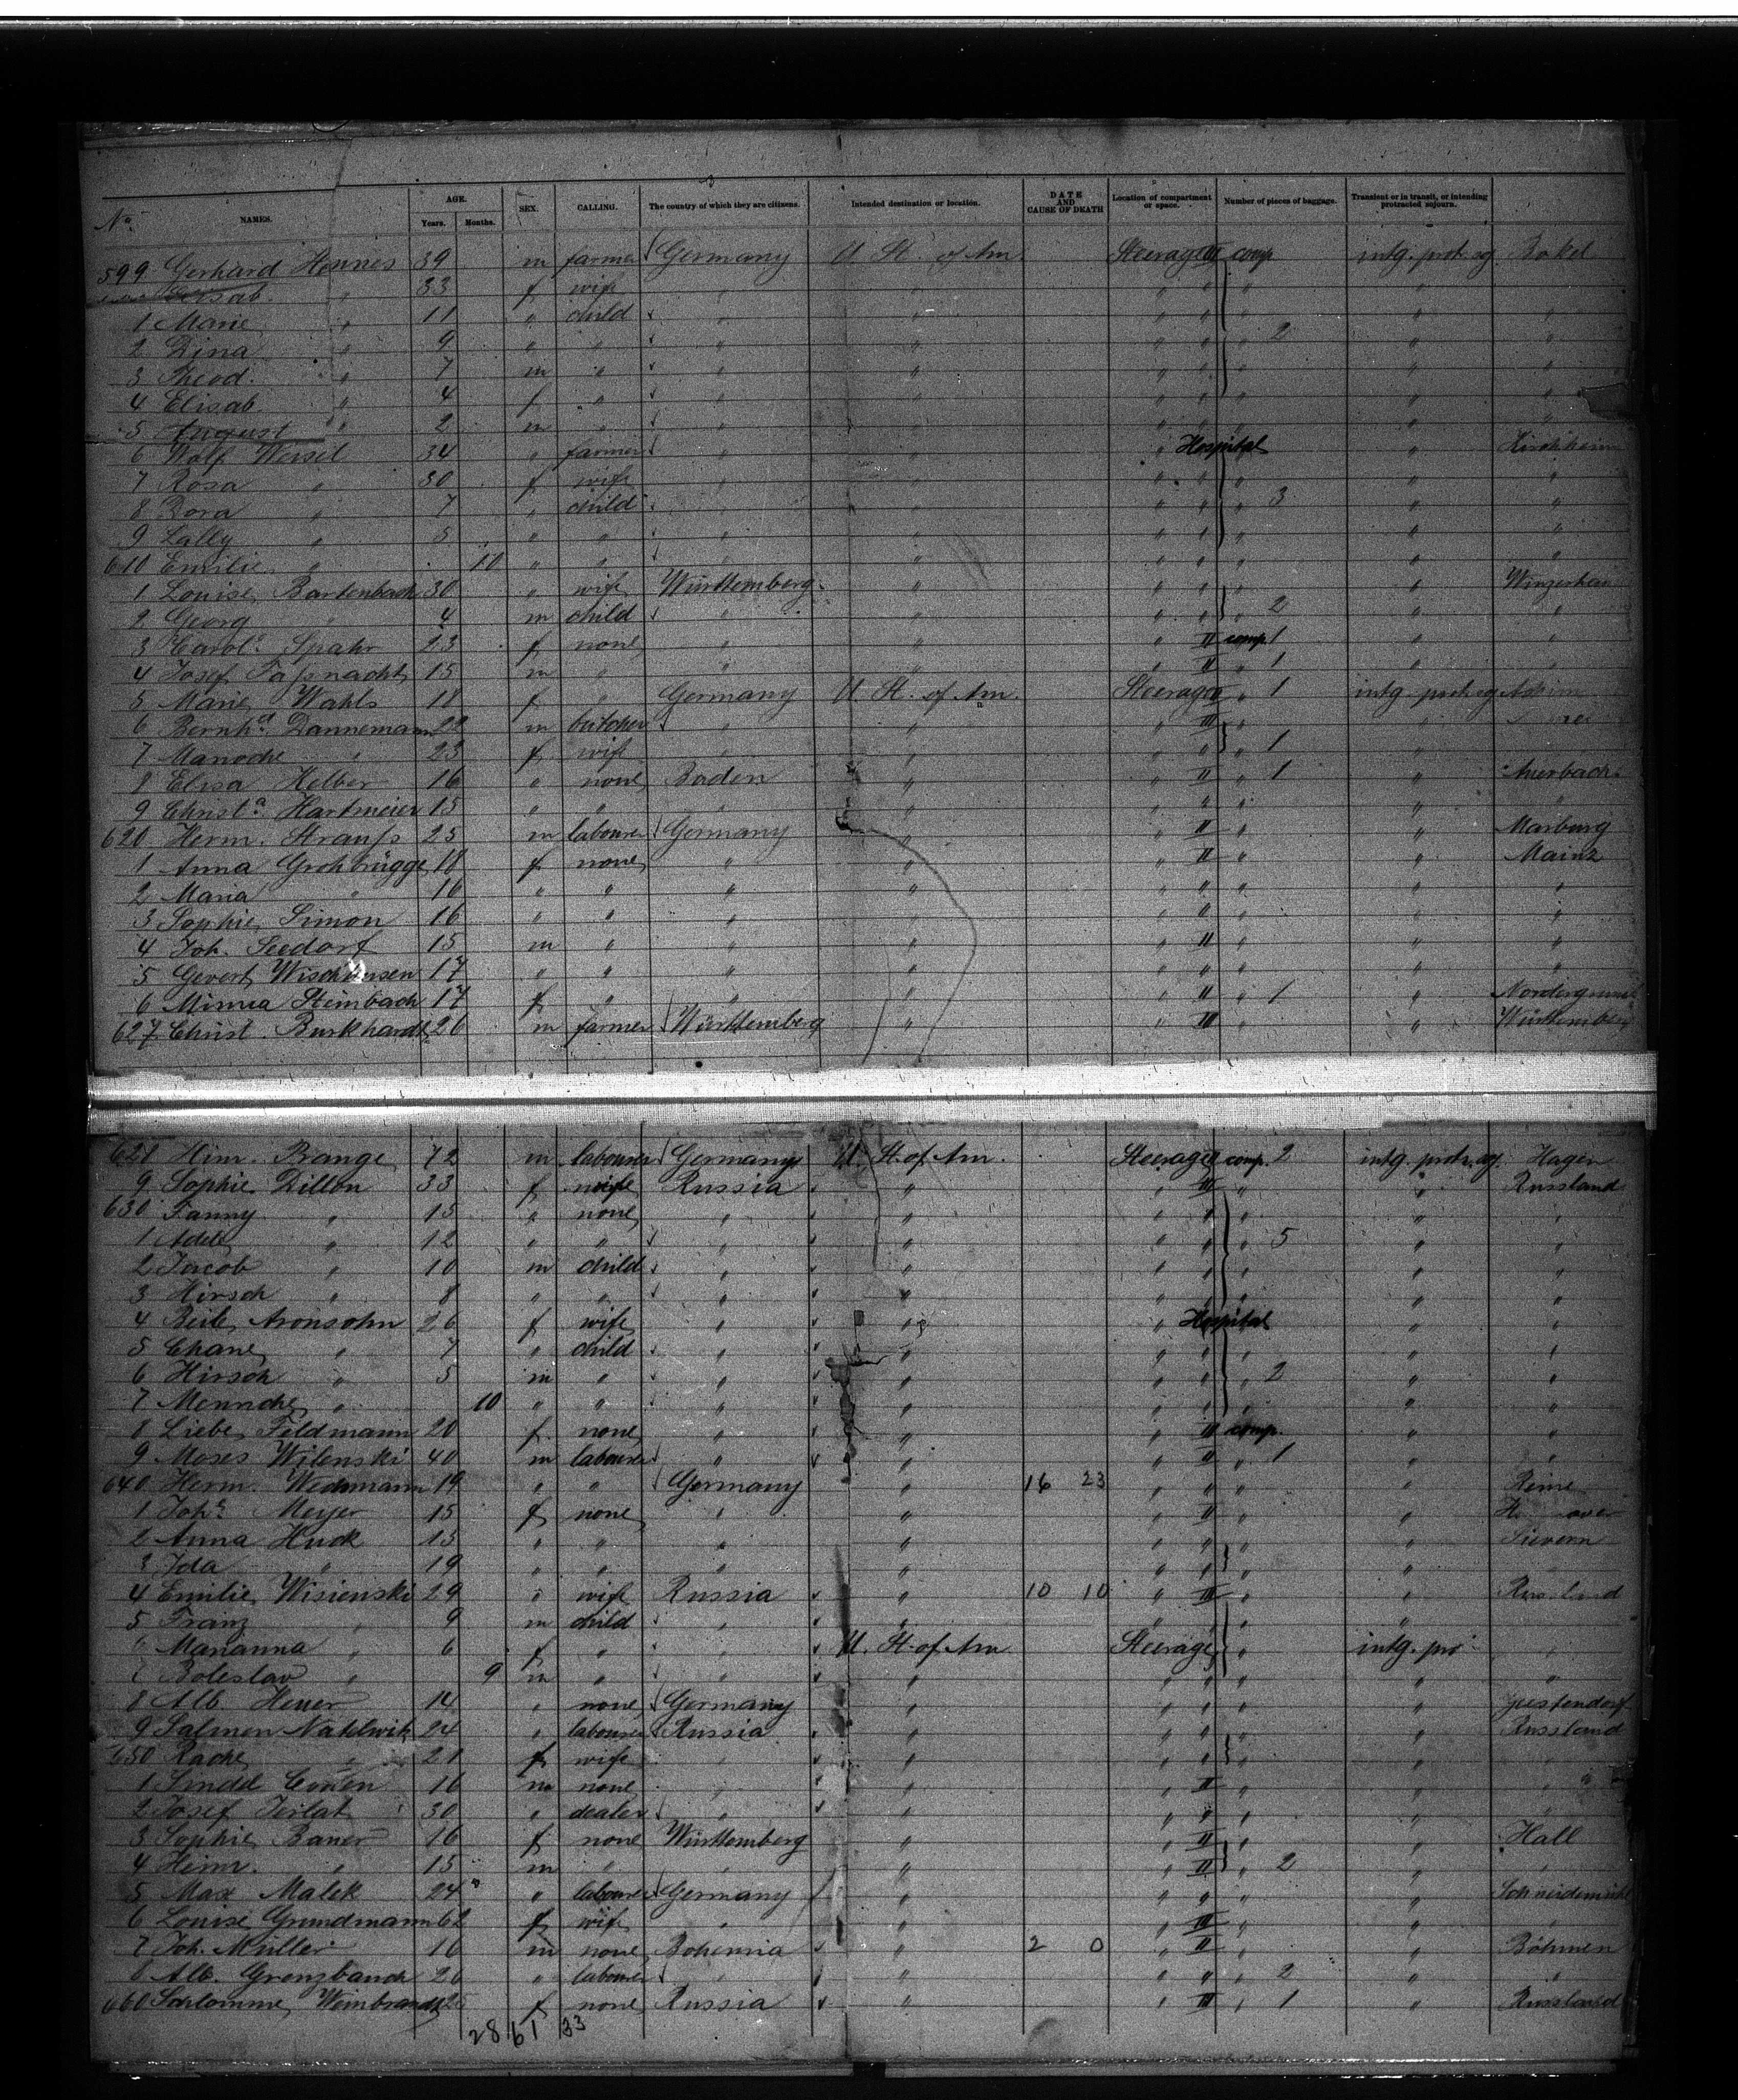 No. NAMES. AGE. Years. Months. SEX. CALLING. The country of which they are citizens. Intended destination or location. DATE AND CAUSE OF DEATH Location of compartment or space. Number of pieces of baggage. Transient or in transit, or intending protracted sojourn.
599 Gerhard Hennes 39 m farmer Germany U. St. of Am. Steerage III comp intg. prot. sg. Bokel
33 f wife " " " " " "
1 Marie " 11 " child " " " " " " "
2 Dina " 9 " " " " " " " 2 " "
3 Theod. " 7 m " " " " " " " "
4 Elisab. " 4 f " " " " " " " "
5 August " 2 m " " " " " " " "
6 Wolf Weisel 34 " farmer " " " Hospital " Kirchheim
7 Rosa " 30 f wife " " " " " " "
8 Dora " 7 " child " " " " " 3 " "
9 Lally " 5 " " " " " " " " "
610 Emilie " 10 " " " " " " " " "
1 Louise Bartenbach 30 " wife Württemberg " " " " "
2 Georg " 4 m child " " " " " 2 " "
3 Carol. Spahr 23 f none " " " II comp 1 " "
4 Josef Faßnacht 15 m " " " " II " 1 " "
5 Marie Wahls 18 f " Germany U. St. of Am. Steerage II " 1 intg. prot. sg.
6 Bernhd. Dannemann 22 m butcher " " " III " "
7 Manoche " 23 f wife " " " " " 1 "
8 Elisa Helber 16 " none Baden " " II " 1 " Auerbach
9 Christa. Hartmeier 15 " " " " " " " " "
620 Herm. Strauß 25 m labourer Germany " " II " " Marburg
1 Anna Grohbrügge 18 f none " " " II " " Mainz
2 Maria " 16 " " " " " " " " "
3 Sophie Simon 16 " " " " " " " " "
4 Joh. Seedorf 15 m " " " " II " " "
5 Gevert Wischhusen 17 " " " " " " " " "
6 Minna Steinbach 17 f " " " " II " 1 "
627 Christ. Burkhardt 26 m farmer Württemberg " " III " " Württemberg
628 Hinr. Bange 72 m labourer Germany U. St. of Am. Steerage II comp. 2 intg. protr. sg. Hagen
9 Sophie Dillon 33 f wife Russia " " III " " Russland
630 Fanny " 15 " none " " " " " " "
1 Adele " 12 " " " " " " " 5 " "
2 Jacob " 10 m child " " " " " " "
3 Hirsch " 8 " " " " " " " " "
4 Beile Aronsohn 26 f wife " " " Hospital " "
5 Chane " 7 " child " " " " " " "
6 Hirsch " 5 m " " " " " " 2 " "
7 Mennche " 10 " " " " " " " " "
8 Liebe Feldmann 20 f none " " " III comp. " "
9 Moses Wilenski 40 m labourer " " " II " 1 " "
640 Herm. Wedmann 19 " " Germany " 16 23 " " " "
1 Johe. Meyer 15 f none " " " II " "
2 Anna Huck 15 " " " " " " " " Sievern
3 Ida " 19 " " " " " " " " "
4 Emilie Wisienski 29 " wife Russia " 10 10 " III " " Russland
5 Franz " 9 m child " " " " " " "
Marianna " 6 f " " U. St. of Am. Steerage " intg. pro "
Boleslav " 9 m " " " " " " " "
8 Alb. Heuer 14 " none Germany " " " " " Geestendorf
9 Salmen Natelwik 24 " labourer Russia " " " " " Russland
650 Rache " 21 f wife " " " " " " "
1 16 m none " " " II " " "
2 Josef 30 " dealer " " " " " " "
3 Sophie Bauer 16 f none Württemberg " " II " " Hall
4 Heinr. " 15 m " " " " II " 2 " "
5 Max Malek 24 " labourer Germany " " " " " Schneidemühl
6 Louise Grundmann 62 f wife " " " III " " "
7 Joh. Müller 16 m none Bohemia " 2 0 " II " " Böhmen
8 Alb. Grenzbauch 26 " labourer " " " " " 2 " "
660 Schlomme Weinbrandt f none Russia " " III " 1 " Russland
28 61 33